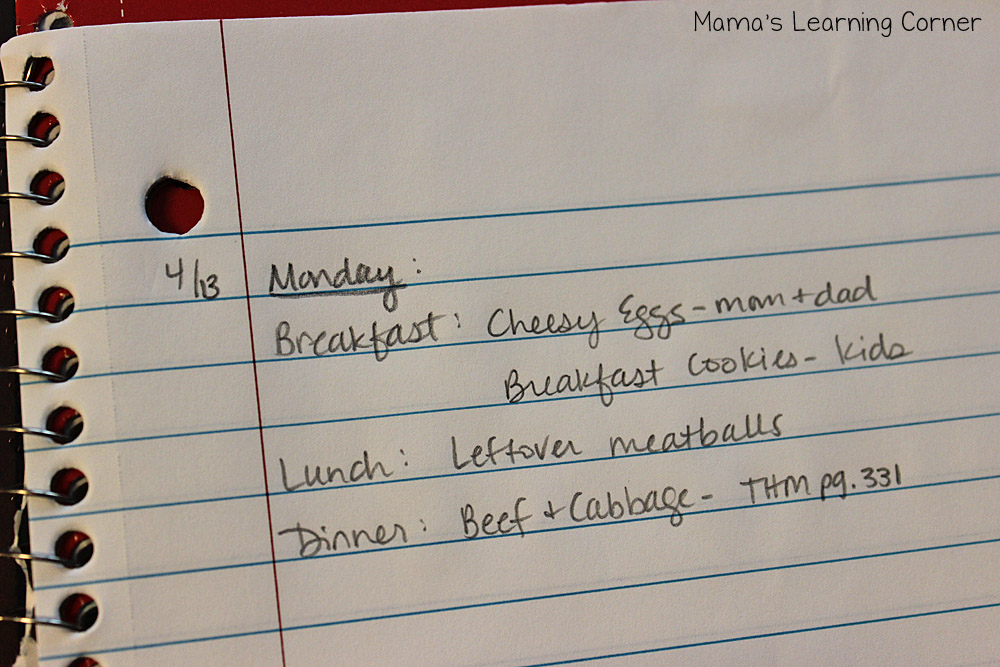 Mama's Learning Corner
4/13 Monday:
Breakfast: Cheesy Eggs - mom + dad
Breakfast Cookies - kids
Lunch: Leftover meatballs
Dinner: Beef + Cabbage - THM pg. 331